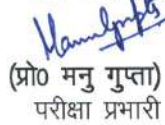 (प्रो० मनु गुप्ता)
परीक्षा प्रभारी